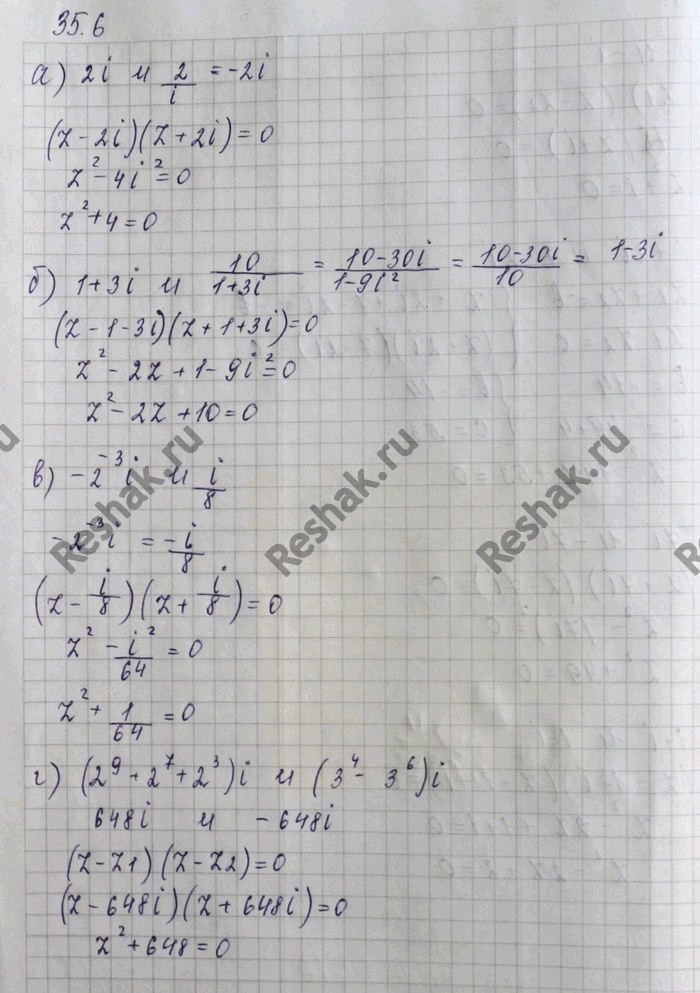 35.6
а) 2i и 2/i = -2i
(z - 2i)(z + 2i) = 0
z² - 4i² = 0
z² + 4 = 0
б) 1+3i и 10/(1+3i) = (10-30i)/(1-9i²) = (10-30i)/10 = 1-3i
(z - 1 - 3i)(z + 1 + 3i) = 0
z² - 2z + 1 - 9i² = 0
z² - 2z + 10 = 0
в) -2⁻³i и i/8
-2⁻³i = -i/8
(z - i/8)(z + i/8) = 0
z² - i²/64 = 0
z² + 1/64 = 0
г) (2⁹ + 2⁷ + 2³)i и (3⁴ - 3⁶)i
648i и - 648i
(z - z1)(z - z2) = 0
(z - 648i)(z + 648i) = 0
z² + 648 = 0
Reshak.ru
Reshak.ru
Reshak.ru